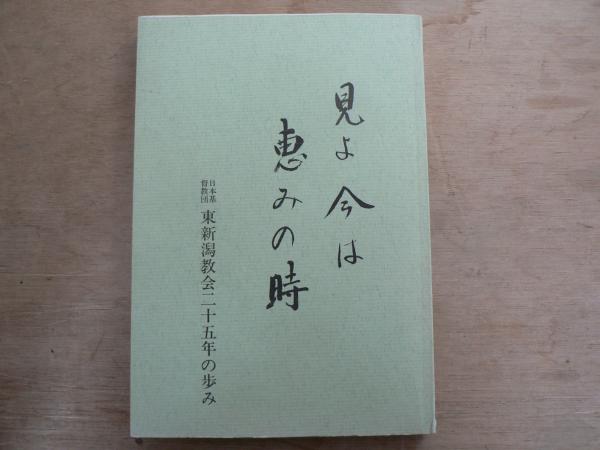 見よ今は
恵みの時
日本基
督教団
東新潟教会二十五年の歩み